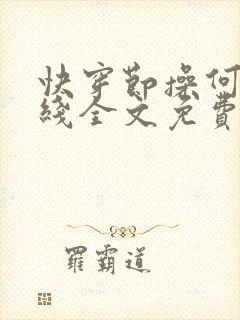 快穿節操何
綫全文免費
羅霸道